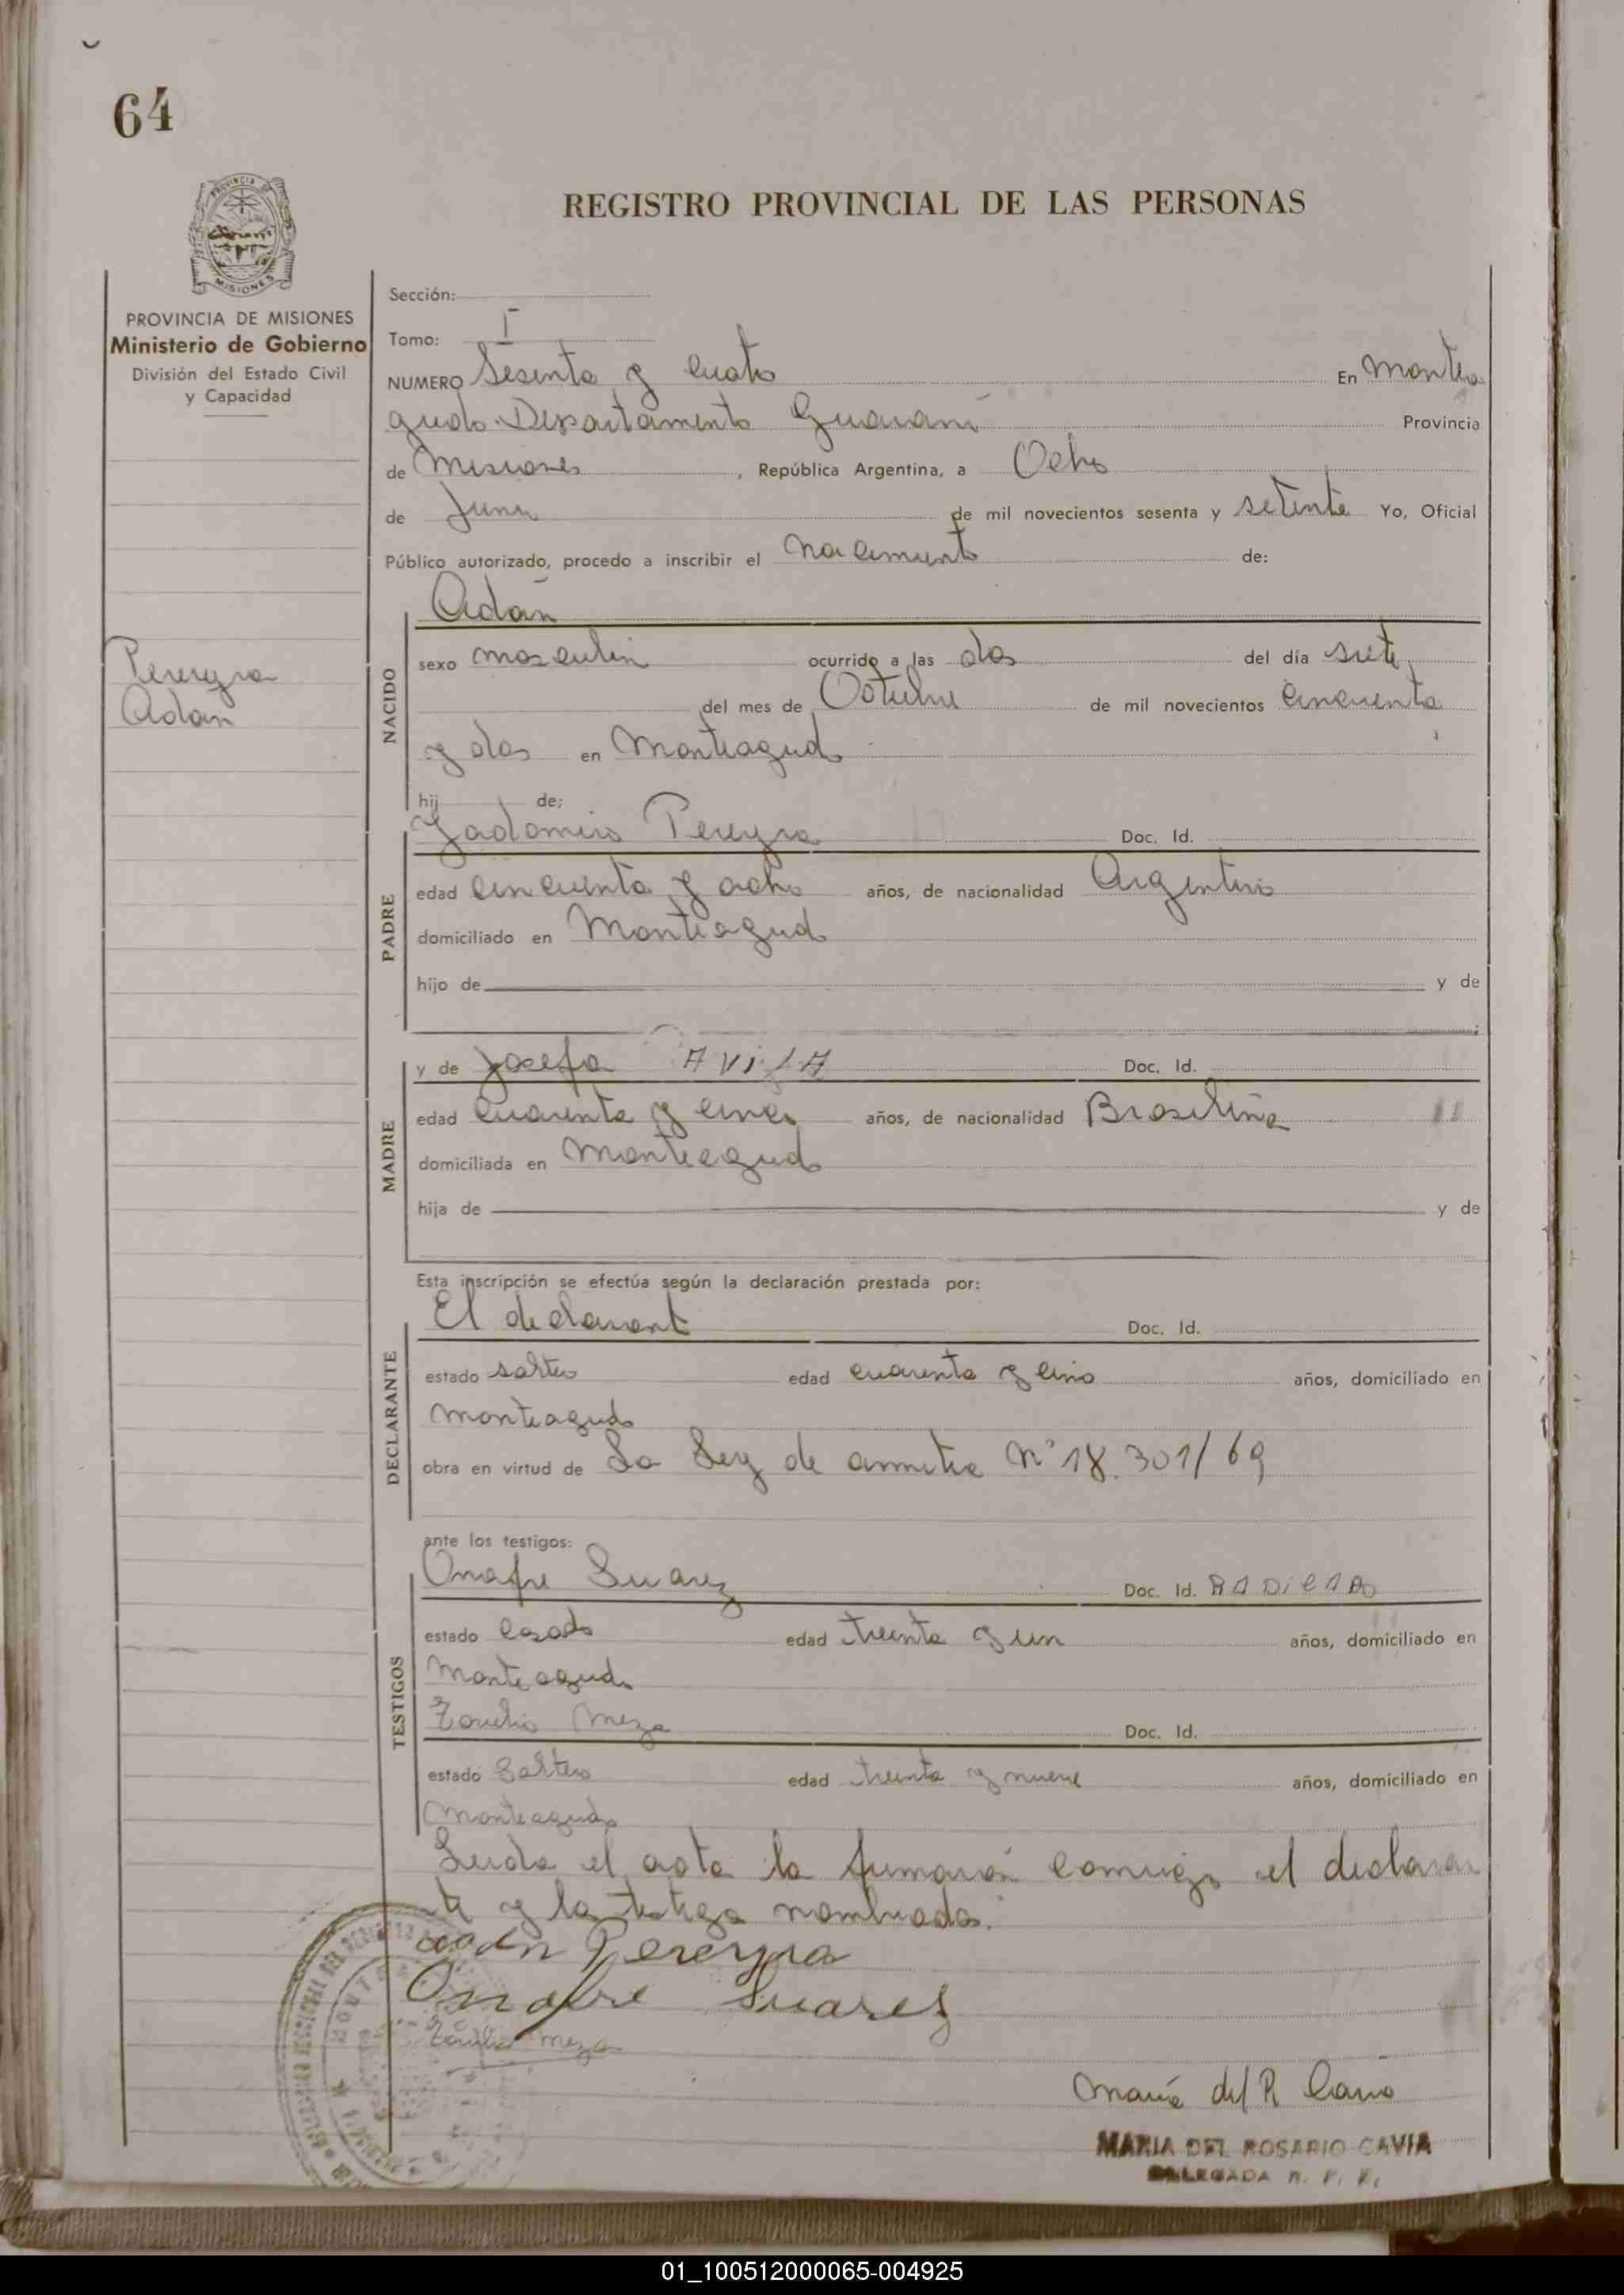 64
PROVINCIA DE
MISIONES
REGISTRO PROVINCIAL DE LAS PERSONAS
PROVINCIA DE MISIONES
Ministerio de Gobierno
División del Estado Civil
y Capacidad
Pereyra
Adan
Sección:
Tomo: I
NUMERO Sesenta y cuatro En Montea
gudo Departamento Guaraní Provincia
de Misiones, República Argentina, a Ocho
de Junio de mil novecientos sesenta y setenta Yo, Oficial
Público autorizado, procedo a inscribir el nacimiento de:
Adán
NACIDO
sexo masculino ocurrido a las dos del día siete
del mes de Octubre de mil novecientos cincuenta
y dos en Monteagudo
hij de;
PADRE
Pereyra Doc. Id.
edad cincuenta y ocho años, de nacionalidad Argentino
domiciliado en Monteagudo
hijo de y de
MADRE
y de Josefa AViLA Doc. Id.
edad cuarenta y cinco años, de nacionalidad Brasileña
domiciliada en Monteagudo
hija de y de
Esta inscripción se efectúa según la declaración prestada por:
DECLARANTE
El declarante Doc. Id.
estado soltero edad cuarenta y años, domiciliado en
Monteagudo
obra en virtud de La Ley de Nº 18.301/69
ante los testigos:
TESTIGOS
Onofre Suarez Doc. Id.
estado casado edad treinta y un años, domiciliado en
Monteagudo
Meza Doc. Id.
estado Soltero edad treinta y nueve años, domiciliado en
Monteagudo
Leida el acta la firmarán conmigo el declaran
te y la testiga nombrados.
adan Pereyra
Onofre Suarez
Meza
María del R Cavia
MARIA DEL ROSARIO CAVIA
DELEGADA R. P. P.
01_100512000065-004925